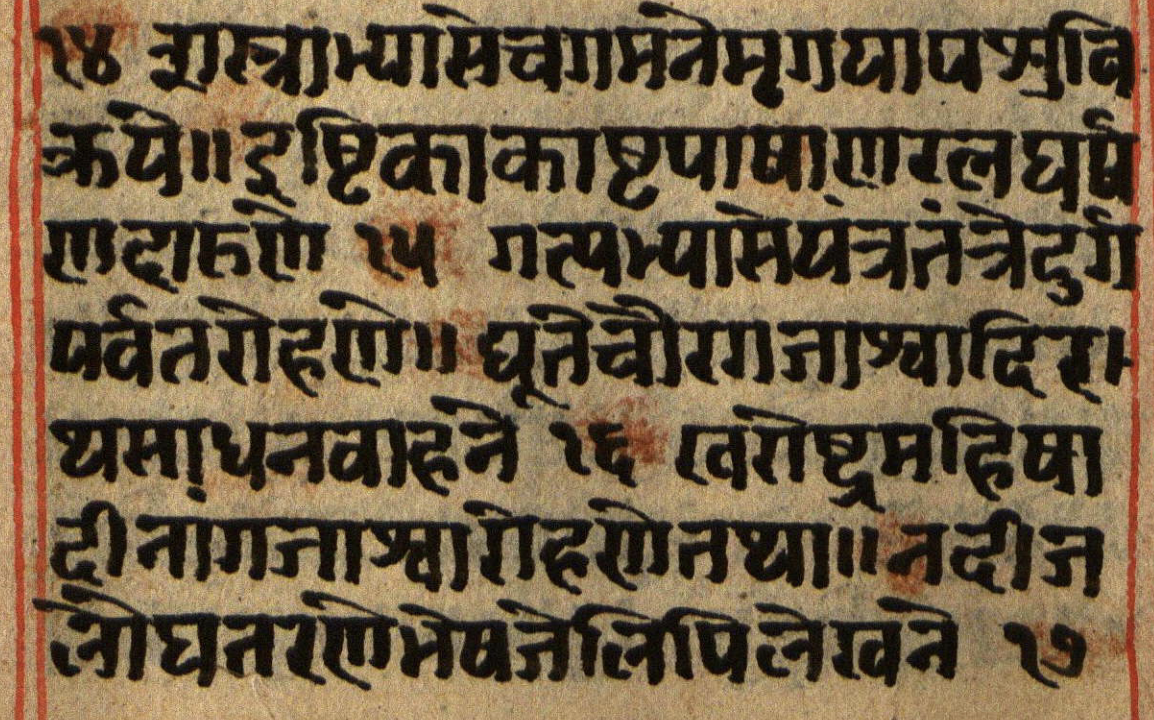 १४ शास्त्राभ्यासेचगमनेमृगयापशुवि
क्रये॥इष्टिकाकाष्टपाषाणरत्नघर्ष
णदारुणे १५ गत्यभ्यासेयंत्रतंत्रेदुर्ग
पर्वतरोहणे॥द्यूतेचौरगजाश्वादिर
थसाधनवाहने १६ खरोष्ट्रमहिषा
दीनांगजाश्वारोहणेतथा॥नदीज
लौघतरणेभेषजेलिपिलेखने १७